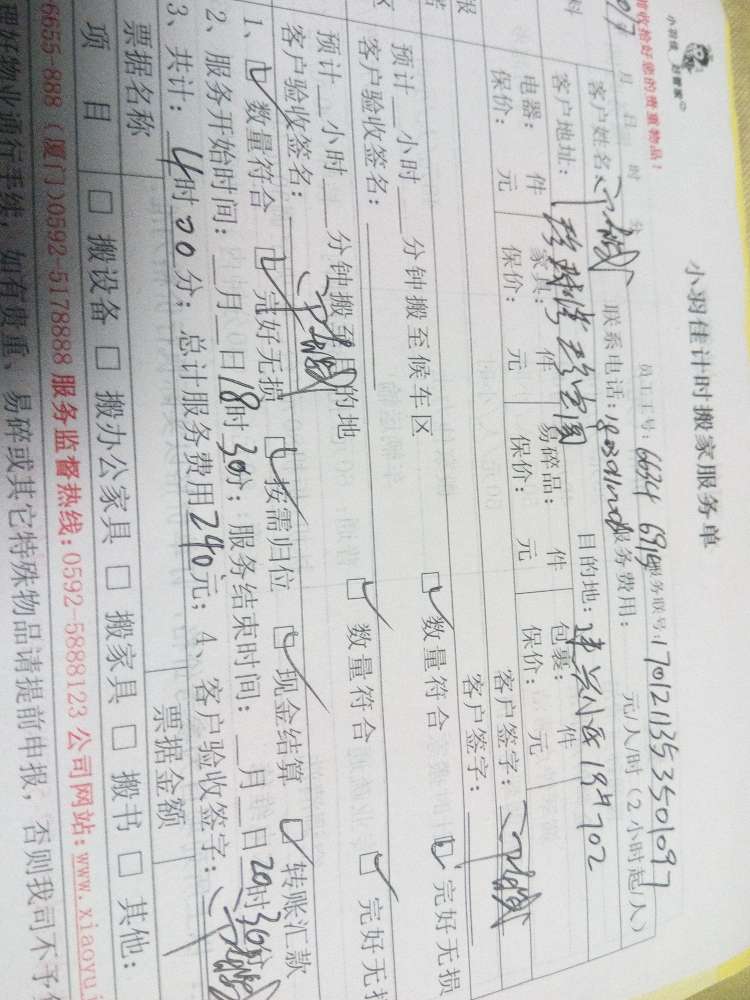 小羽佳 好管家
请收拾好您的贵重物品!
小羽佳计时搬家服务单
员工工号: 6634 6919 服务联号: 170121135350109
月 日 时 分
客户姓名: 联系电话: 服务费用: 元/人/时(2小时起/人)
客户地址: 目的地:
电器: 件 家具: 件 易碎品: 件 包裹: 件
保价: 元 保价: 元 保价: 元 保价: 元
客户签字:
客户签字:
预计__小时__分钟搬至候车区 数量符合 完好无损
客户验收签名: 数量符合 完好无损
预计__小时__分钟搬至目的地
客户验收签名:
1、 数量符合 完好无损 按需归位 现金结算 转账汇款
2、服务开始时间:__月__日18时30分; 服务结束时间:__月__日20时30分
3、共计: 4时00分; 总计服务费用240元; 4、客户验收签字:
票据名称 票据金额
项 目 □ 搬设备 □ 搬办公家具 □ 搬家具 □ 搬书 □ 其他:
6655-888 (厦门)0592-5178888 服务监督热线:0592-5888123 公司网站:www.xiaoyuj
理好物业通行手续, 如有贵重、易碎或其它特殊物品请提前申报, 否则我司不予